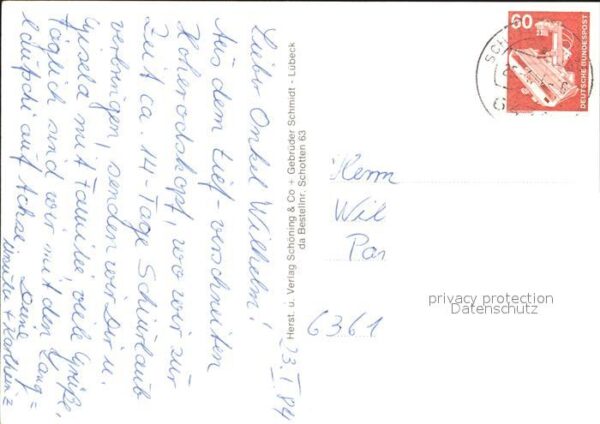 23. I. 84
Lieber Onkel Wilhelm!
Aus dem tief-verschneiten
Hoherodskopf, wo wir zur
Zeit ca. 14-Tage Schiurlaub
verbringen, senden wir Dir u.
Gisela mit Familie, viele Grüße.
Täglich sind wir mit den Lang=
laufschi auf Achse. Deine
+ Karlheinz
Herst. u. Verlag Schöning & Co + Gebrüder Schmidt - Lübeck
da Bestellnr. Schotten 63
60
DEUTSCHE BUNDESPOST
SCH
Herrn
Wil
Par
6361
privacy protection
Datenschutz